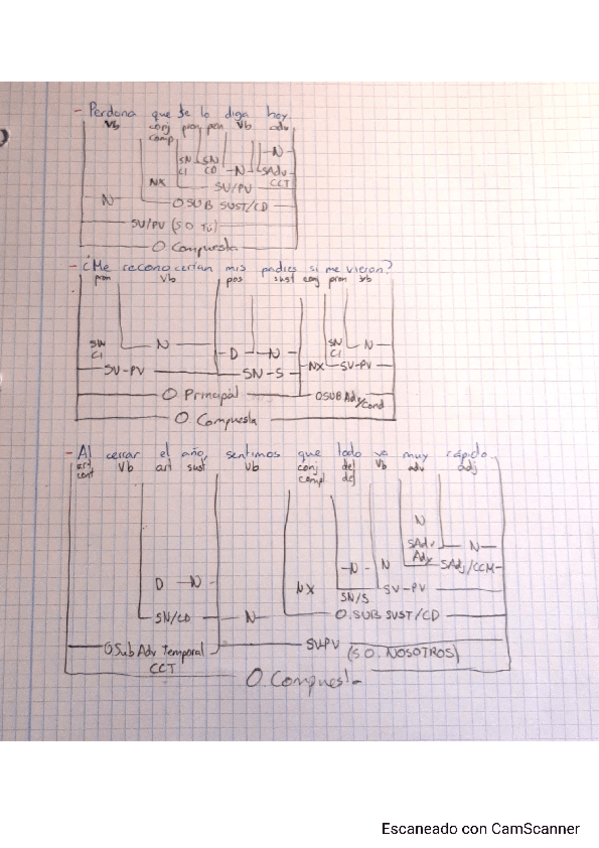 - Perdona que te lo diga hoy.
Vb conj pron pron Vb adv
comp
N
SN SN N SAdv
CI CD CCT
NX SV/PV
N O.SUB SUST/CD
SV/PV (S.O. TÚ)
O Compuesta
- ¿Me reconocerían mis padres si me vieran?
pron Vb pos sust conj pron vb
SN N SN N
CI D N CI
SV-PV SN-S NX SV-PV
O. Principal OSUB Adv/Cond
O. Compuesta
- Al cerrar el año, sentimos que todo va muy rápido.
art Vb art sust Vb conj Vb adv adj
cont compl
N
SAdv N
D N N N Ady SAdj/CCM
NX SN/S SV-PV
SN/CD N O.SUB SUST/CD
OSub Adv Temporal SV-PV (S.O. NOSOTROS)
CCT
O. Compuesta
Escaneado con CamScanner